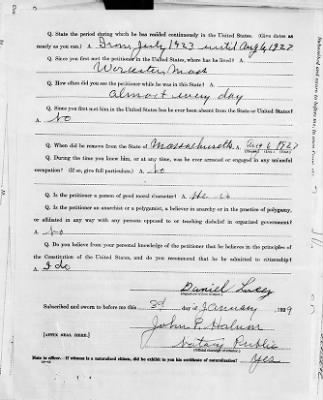 Q. State the period during which he has resided continuously in the United States. (Give dates as
nearly as you can.) A. From July 1923 until Aug 6, 1927
Q. Since you first met the petitioner in the United States, where has he lived? A.
Worcester, Mass
Q. How often did you see the petitioner while he was in this State? A.
almost every day
Q. Since you first met him in the United States has he ever been absent from the State or United States?
A. No
Q. When did he remove from the State of Massachusetts A. Aug 6 1927
Q. During the time you knew him, or at any time, was he ever arrested or engaged in any unlawful
occupation? (If so, give full particulars.) A. No
Q. Is the petitioner a person of good moral character? A. He is
Q. Is the petitioner an anarchist or a polygamist, a believer in anarchy or in the practice of polygamy,
or affiliated in any way with any persons opposed to or teaching disbelief in organized government?
A. No
Q. Do you believe from your personal knowledge of the petitioner that he believes in the principles of
the Constitution of the United States, and do you recommend that he be admitted to citizenship?
A. I do
Daniel
Subscribed and sworn to before me this 3d day of January 1929
John P. Halnon
[AFFIX SEAL HERE.] Notary Public
Note to officer. If witness is a naturalized citizen, did he exhibit to you his certificate of naturalization? Yes